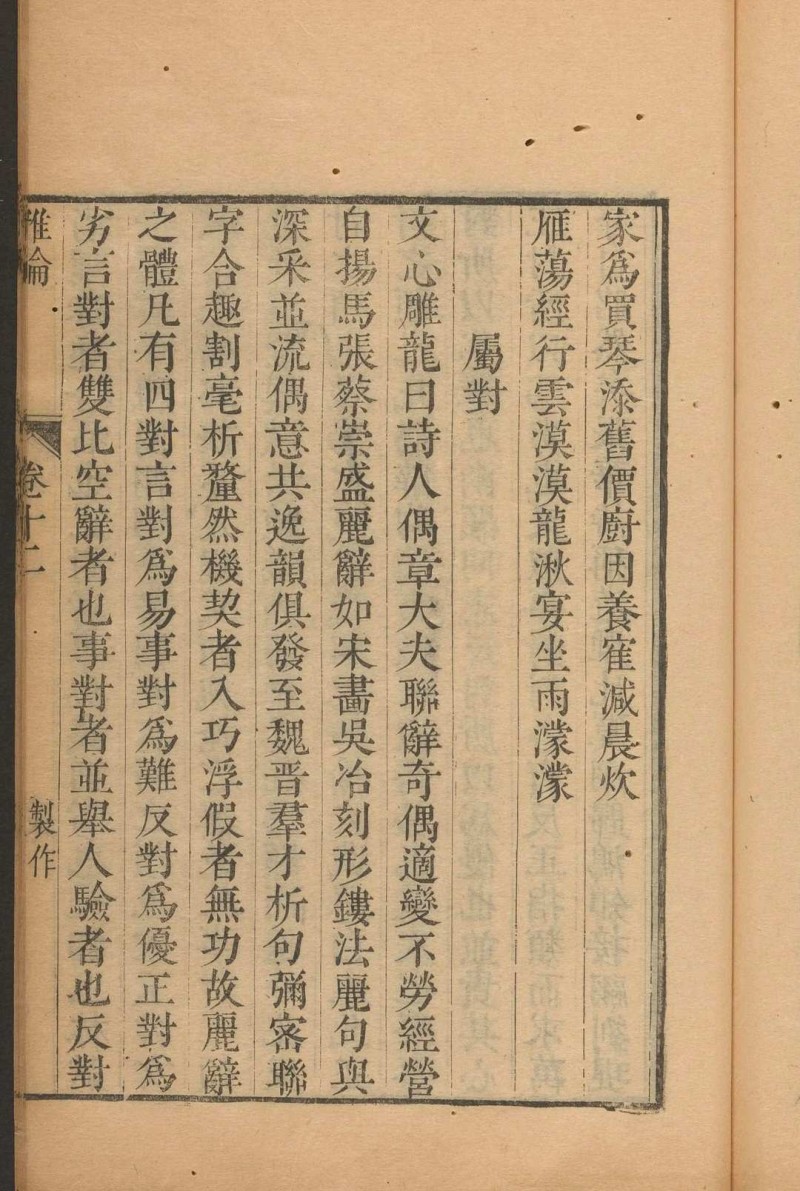 家爲買琴添舊價廚因養寉減晨炊
雁蕩經行雲漠漠龍湫宴坐雨濛濛
屬對
文心雕龍曰詩人偶章大夫聯辭奇偶適變不勞經營
自揚馬張蔡崇盛麗辭如宋畵吳冶刻形鏤法麗句與
深采並流偶意共逸韻俱發至魏晉羣才析句彌宻聯
字合趣割毫析釐然機契者入巧浮假者無功故麗辭
之體凡有四對言對爲易事對爲難反對爲優正對爲
劣言對者雙比空辭者也事對者並舉人驗者也反對
卷十二
製作